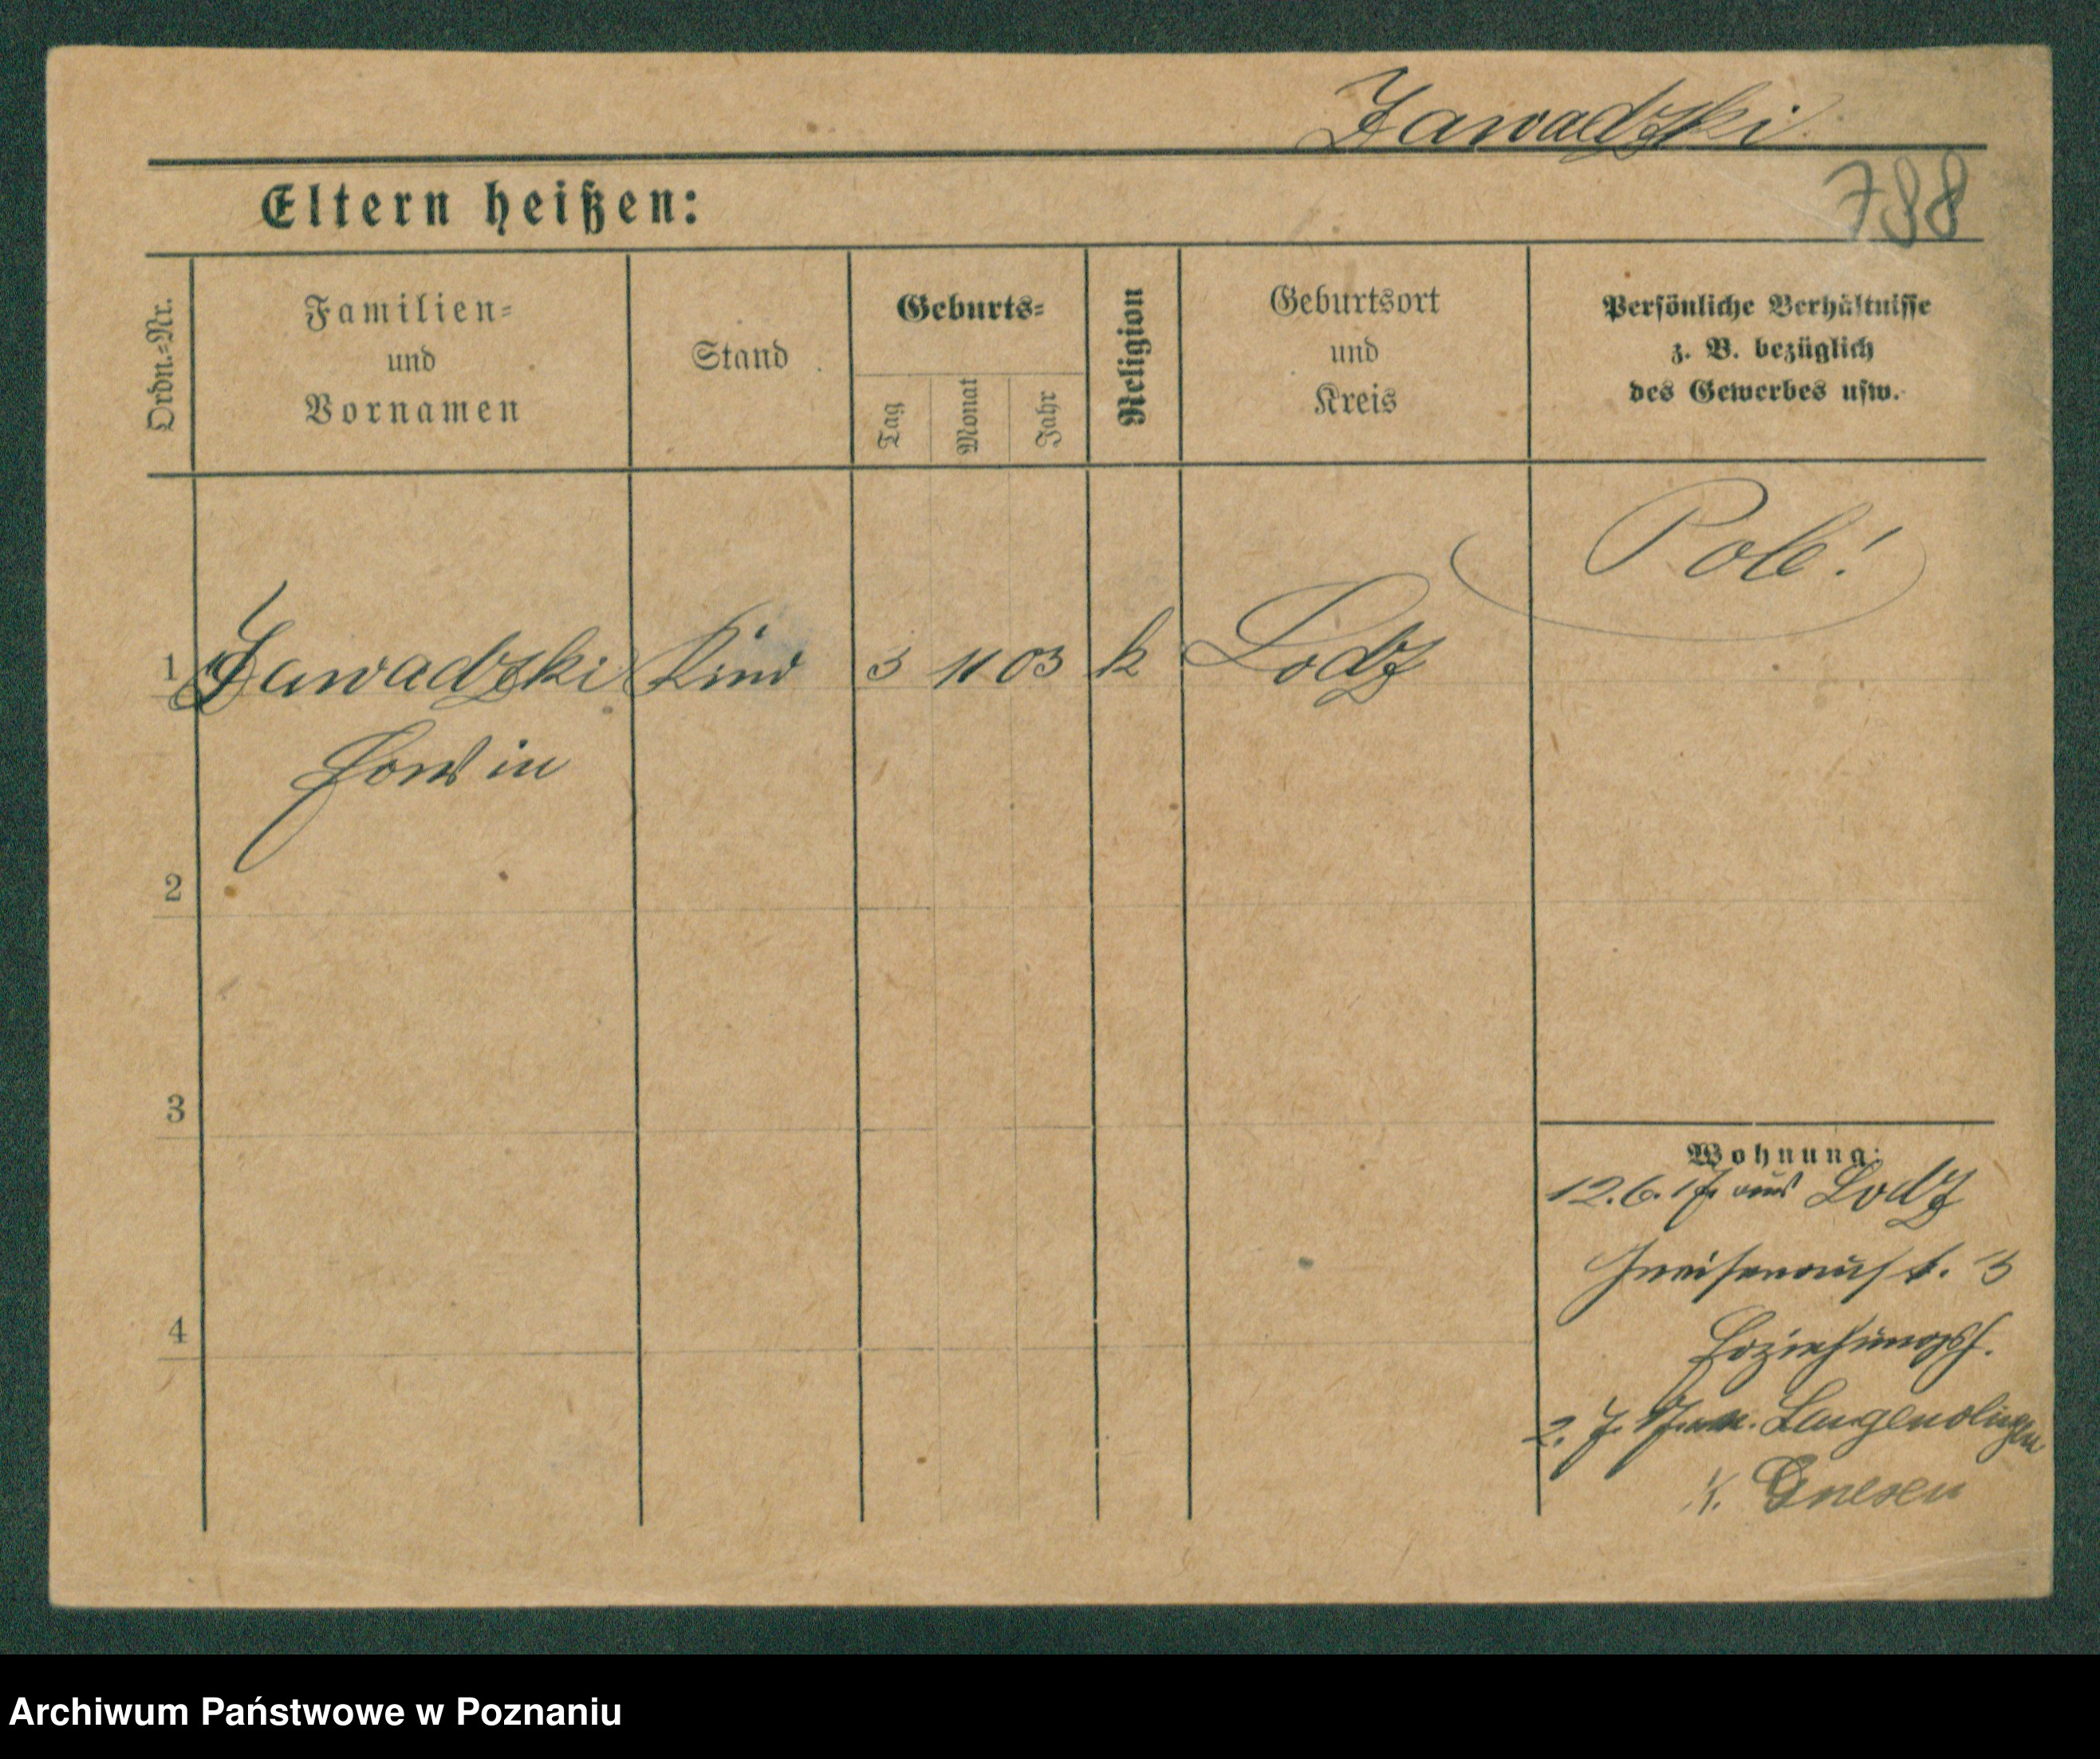 Zawadzki
788
Eltern heißen:
Ordn.-Nr.
Familien- und Vornamen
Stand
Geburts-
Tag
Monat
Jahr
Religion
Geburtsort und Kreis
Persönliche Verhältnisse z. B. bezüglich des Gewerbes usw.
Pole!
1 Zawadzki Kind 3 11 03 k Lodz
2
3
4
Wohnung:
12.6.17 aus Lodz
Gneisenaust. 3
Erziehungsh.
2. 7. 17. Langenolingen
K. Gnesen
Archiwum Państwowe w Poznaniu